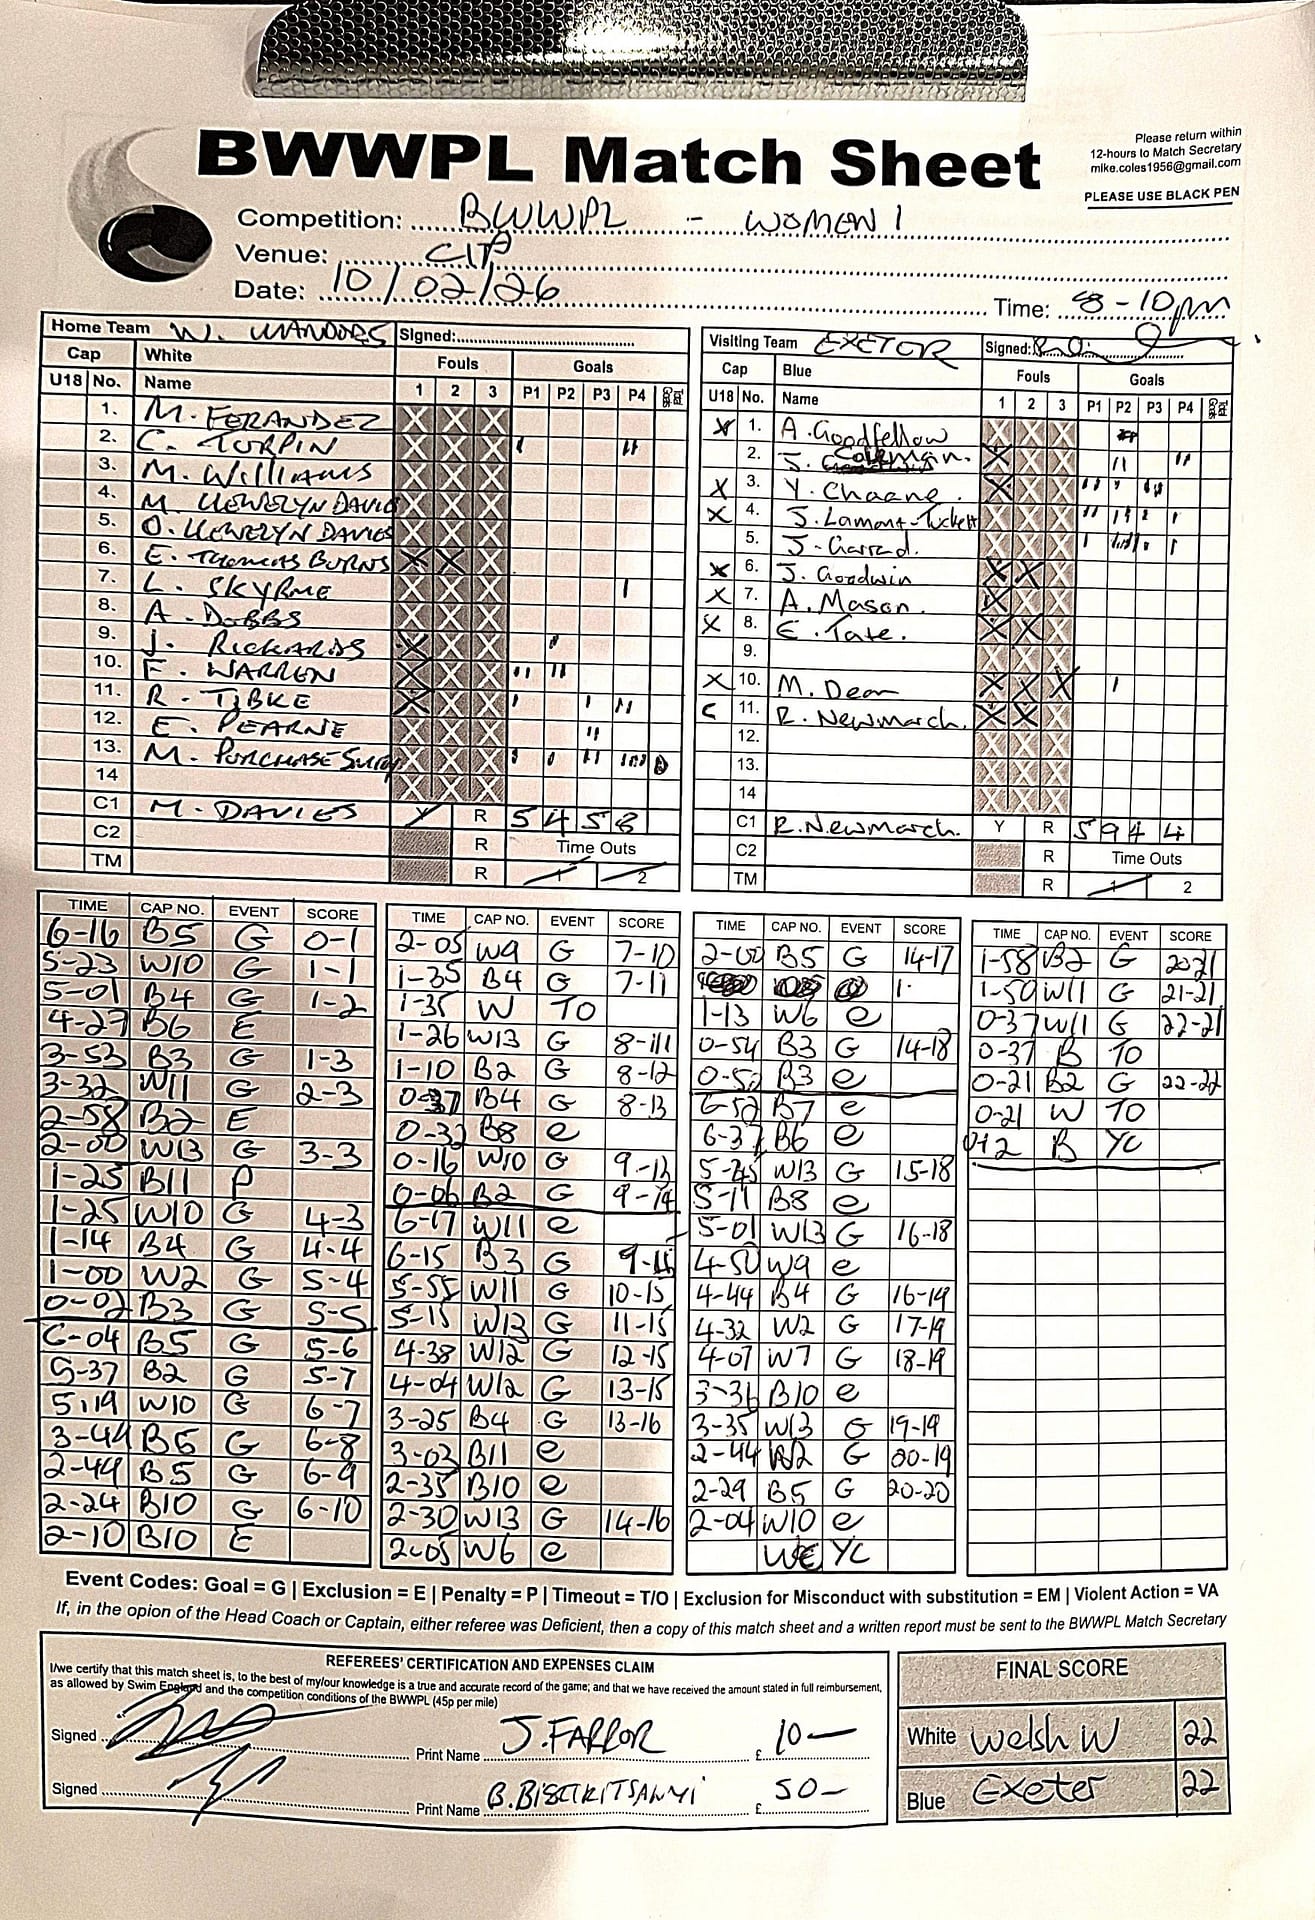 BWWPL Match Sheet
Please return within
12-hours to Match Secretary
mike.coles1956@gmail.com
PLEASE USE BLACK PEN
Competition: BWWPL - WOMEN 1
Venue: CITP
Date: 10/02/26 Time: 8-10pm
Home Team W. WANDORS Signed:
Cap White Fouls Goals
U18 No. Name 1 2 3 P1 P2 P3 P4
1. M. FERANDEZ
2. C. TURPIN
3. M. WILLIAMS
4. M. LLEWELYN DAVIES
5. O. LLEWELYN DAVIES
6. E. THOMAS BURNS
7. L. SKYRME
8. A. DOBBS
9. J. RICKARDS
10. F. WARREN
11. R. TIBKE
12. E. PEARNE
13. M. PURCHASE SMITH
14
C1 M. DAVIES Y R 5 4 5 8
C2 R Time Outs
TM R 1 2
Visiting Team EXETOR Signed:
Cap Blue Fouls Goals
U18 No. Name 1 2 3 P1 P2 P3 P4
X 1. A. Goodfellow
2. S. Coleman.
X 3. Y. Chaane.
X 4. J. Lamont-Tuckett
5. J. Garrad.
X 6. J. Goodwin
X 7. A. Mason.
X 8. E. Tate.
9.
X 10. M. Dean
C 11. R. Newmarch.
12.
13.
14
C1 R. Newmarch. Y R 5 9 4 4
C2 R Time Outs
TM R 1 2
TIME CAP NO. EVENT SCORE
6-16 B5 G 0-1
5-23 W10 G 1-1
5-01 B4 G 1-2
4-27 B6 E
3-53 B3 G 1-3
3-32 W11 G 2-3
2-58 B2 E
2-00 W13 G 3-3
1-25 B11 P
1-25 W10 G 4-3
1-14 B4 G 4-4
1-00 W2 G 5-4
0-02 B3 G 5-5
6-04 B5 G 5-6
5-37 B2 G 5-7
5.19 W10 G 6-7
3-44 B5 G 6-8
2-49 B5 G 6-9
2-24 B10 G 6-10
2-10 B10 E
TIME CAP NO. EVENT SCORE
2-05 W9 G 7-10
1-35 B4 G 7-11
1-35 W TO
1-26 W13 G 8-11
1-10 B2 G 8-12
0-37 B4 G 8-13
0-32 B8 e
0-16 W10 G 9-13
0-06 B2 G 9-14
6-17 W11 e
6-15 B3 G 9-15
5-55 W11 G 10-15
5-15 W13 G 11-15
4-38 W12 G 12-15
4-04 W12 G 13-15
3-25 B4 G 13-16
3-03 B11 e
2-35 B10 e
2-30 W13 G 14-16
2-05 W6 e
TIME CAP NO. EVENT SCORE
2-00 B5 G 14-17
1-13 W6 e
0-54 B3 G 14-18
0-52 B3 e
6-52 B7 e
6-37 B6 e
5-45 W13 G 15-18
5-11 B8 e
5-01 W13 G 16-18
4-50 W9 e
4-44 B4 G 16-19
4-32 W2 G 17-19
4-07 W7 G 18-19
3-36 B10 e
3-35 W13 G 19-19
2-44 W2 G 20-19
2-29 B5 G 20-20
2-04 W10 e
WC YC
TIME CAP NO. EVENT SCORE
1-58 B2 G 20-21
1-50 W11 G 21-21
0-37 W11 G 22-21
0-37 B TO
0-21 B2 G 22-22
0-21 W TO
0-12 B YC
Event Codes: Goal = G | Exclusion = E | Penalty = P | Timeout = T/O | Exclusion for Misconduct with substitution = EM | Violent Action = VA
If, in the opion of the Head Coach or Captain, either referee was Deficient, then a copy of this match sheet and a written report must be sent to the BWWPL Match Secretary
REFEREES' CERTIFICATION AND EXPENSES CLAIM
I/we certify that this match sheet is, to the best of my/our knowledge is a true and accurate record of the game; and that we have received the amount stated in full reimbursement,
as allowed by Swim England and the competition conditions of the BWWPL (45p per mile)
Signed Print Name J. FARROR £ 10-
Signed Print Name £ 50-
FINAL SCORE
White Welsh W 22
Blue Exeter 22